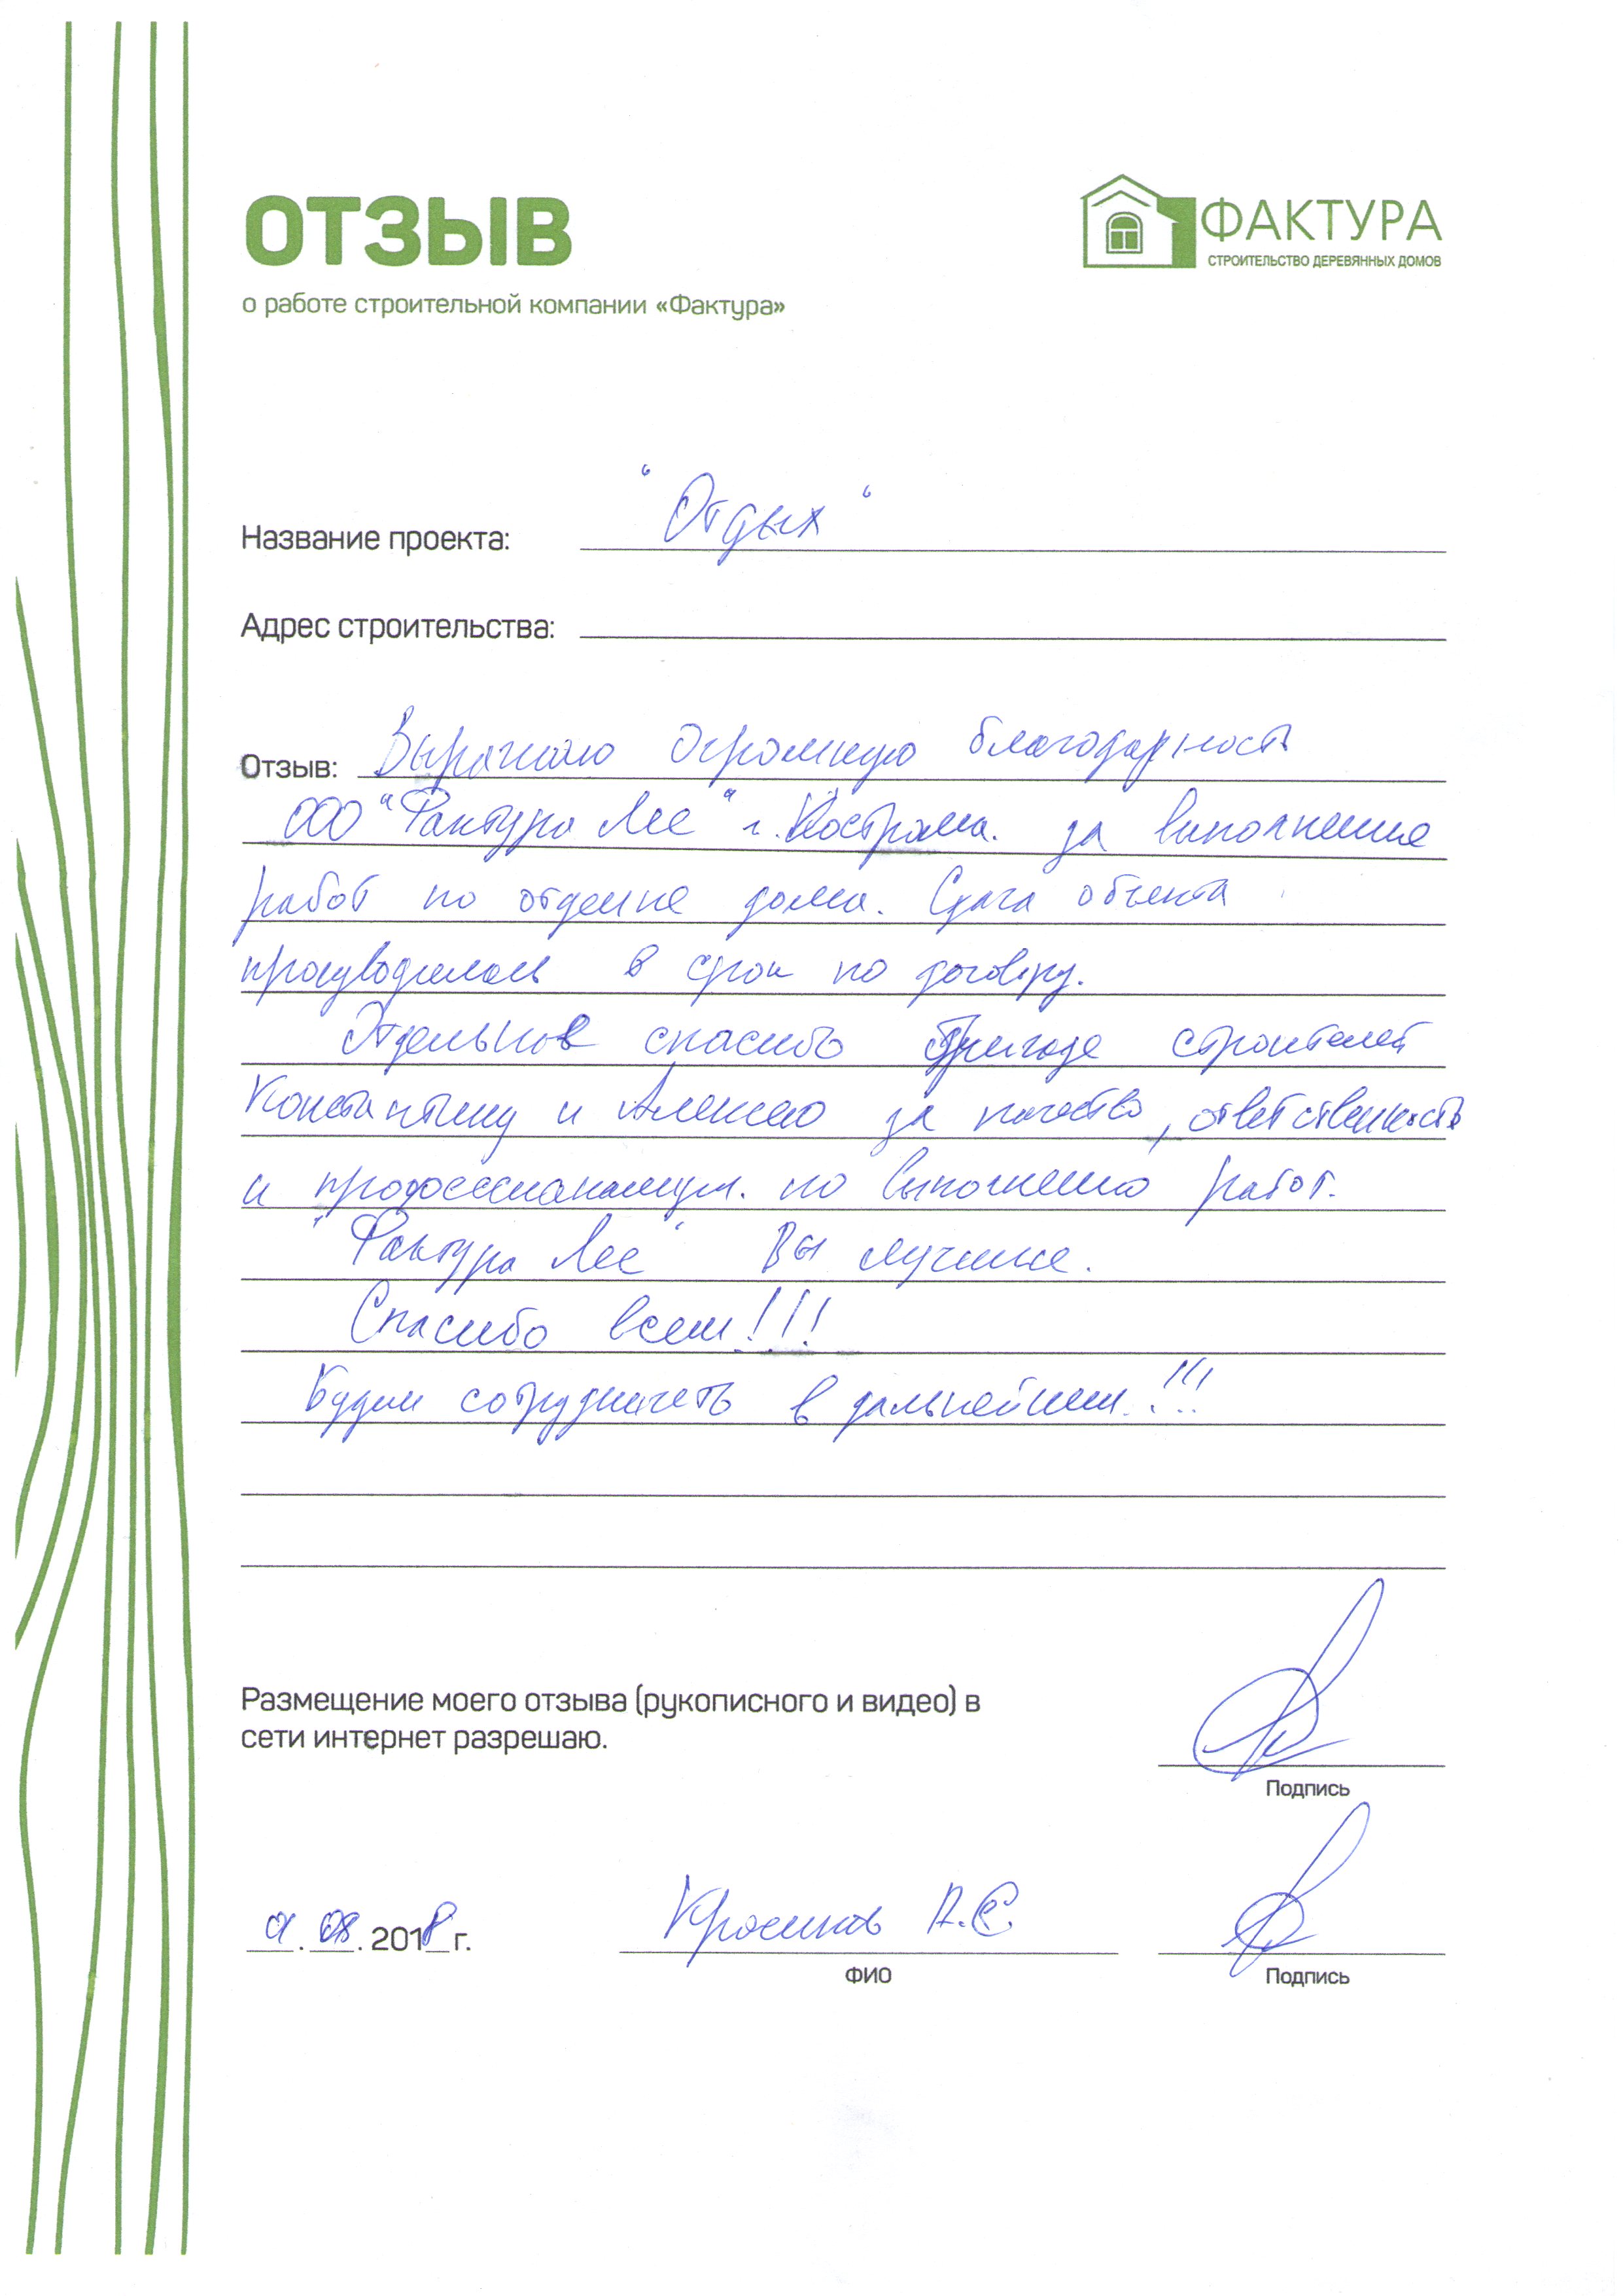 ОТЗЫВ
ФАКТУРА
СТРОИТЕЛЬСТВО ДЕРЕВЯННЫХ ДОМОВ
о работе строительной компании «Фактура»
Название проекта: "Отдых"
Адрес строительства:
Отзыв: Выражаю огромную благодарность
ООО "Фактура Лес" г. Кострома. за выполнение
работ по отделке дома. Сдача объекта
производилась в срок по договру.
Отдельное спасибо бригаде строителей
Константину и Алексею за качество, ответственность
и профессионализм. по выполнению работ.
"Фактура Лес" Вы лучшие.
Спасибо всем!!!
Будем сотрудничать в дальнейшем.!!!
Размещение моего отзыва (рукописного и видео) в
сети интернет разрешаю.
Подпись
08. 2018 г. А.С.
ФИО
Подпись